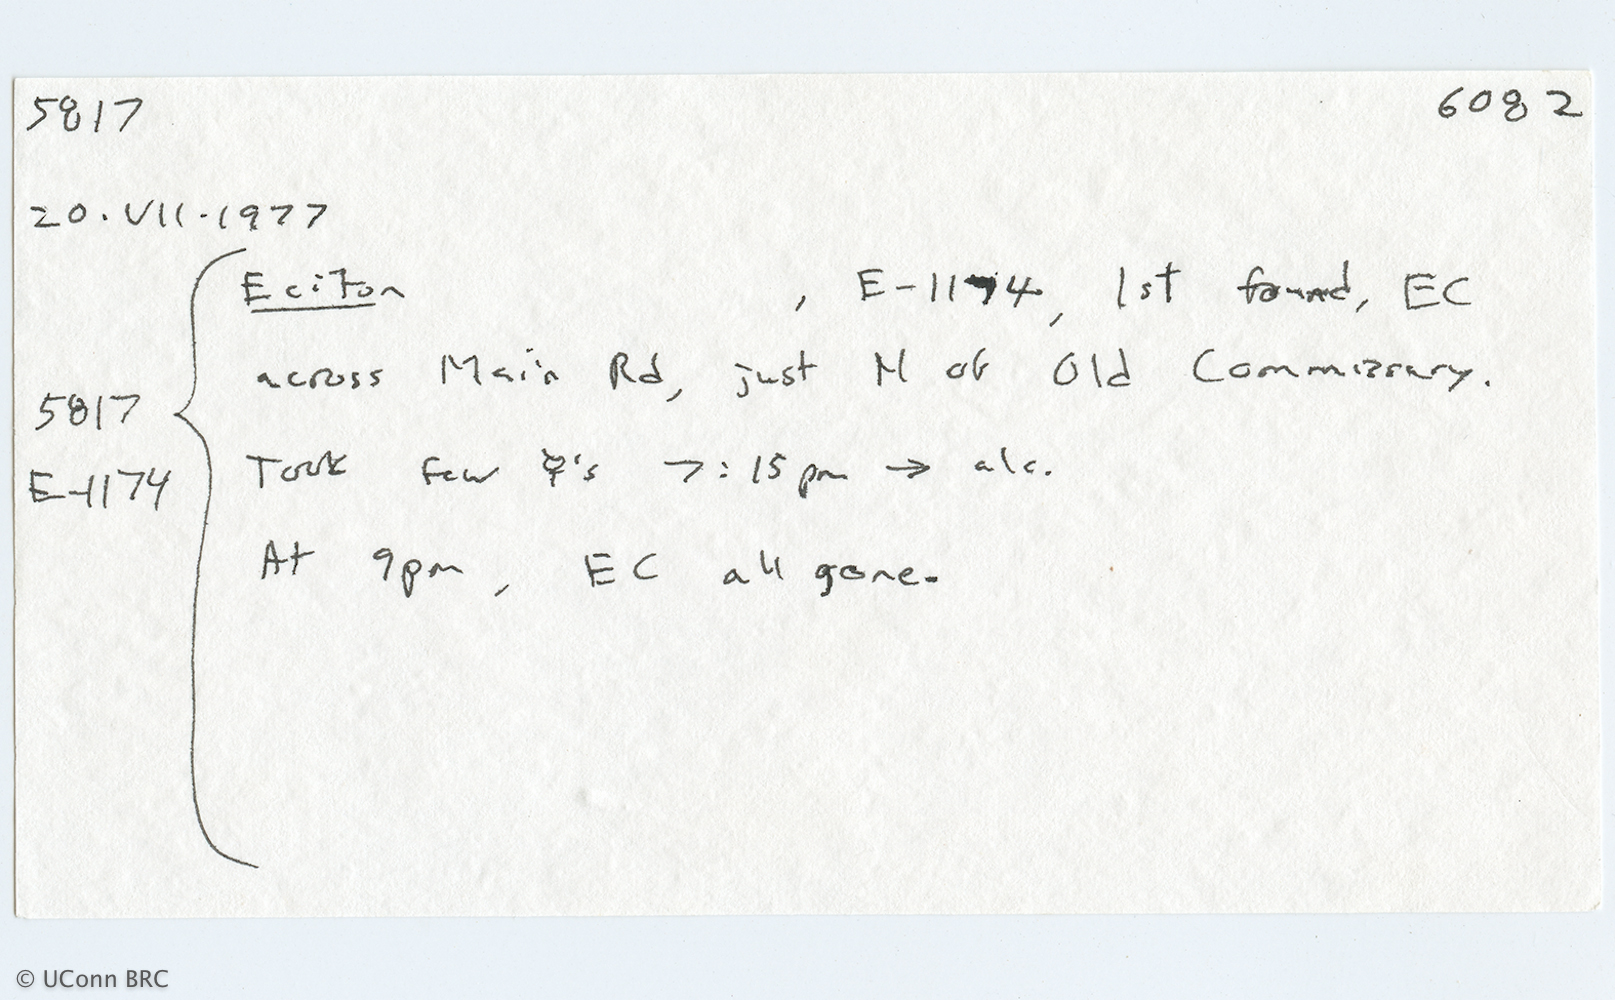 5817 6082
20.VII.1977
Eciton , E-1174, 1st found, EC
across Main Rd, just N of Old Commissary.
5817
Took few ☿'s 7:15 pm → alc.
E-1174
At 9pm, EC all gone.
© UConn BRC